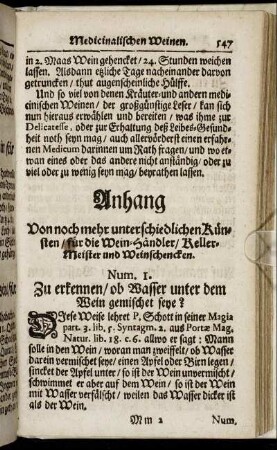 Medicinalischen Weinen. 547
in 2. Maas Wein gehencket / 24. Stunden weichen
lassen. Alsdann etzliche Tage nacheinander darvon
getruncken / thut augenscheinliche Hülffe.
Und so viel von denen Kräuter-und andern medi-
cinischen Weinen / der großgünstige Leser / kan sich
nun hieraus erwählen und bereiten / was ihme zur
Delicatesse, oder zur Erhaltung deß Leibes-Gesund-
heit noth seyn mag / auch allervörderst einen erfahr-
nen Medicum darinnen um Rath fragen / und wo et-
wan eines oder das andere nicht anständig / oder zu
viel oder zu wenig seyn mag / beyrathen lassen.
Anhang
Von noch mehr unterschiedlichen Kün-
sten / für die Wein-Händler / Keller-
Meister und Weinschencken.
Num. 1.
Zu erkennen / ob Wasser unter dem
Wein gemischet seye?
DIese Weise lehret P. Schott in seiner Magia
part. 3. lib. 5. Syntagm. 2. aus Portæ Mag.
Natur. lib. 18. c. 6. allwo er sagt: Mann
solle in den Wein / woran man zweiffelt / ob Wasser
darein vermischet seye / einen Apfel oder Birn legen /
sincket der Apfel unter / so ist der Wein unvermischt /
schwimmet er aber auf dem Wein / so ist der Wein
mit Wasser verfälscht / weilen das Wasser dicker ist
als der Wein.
M m 2 Num.